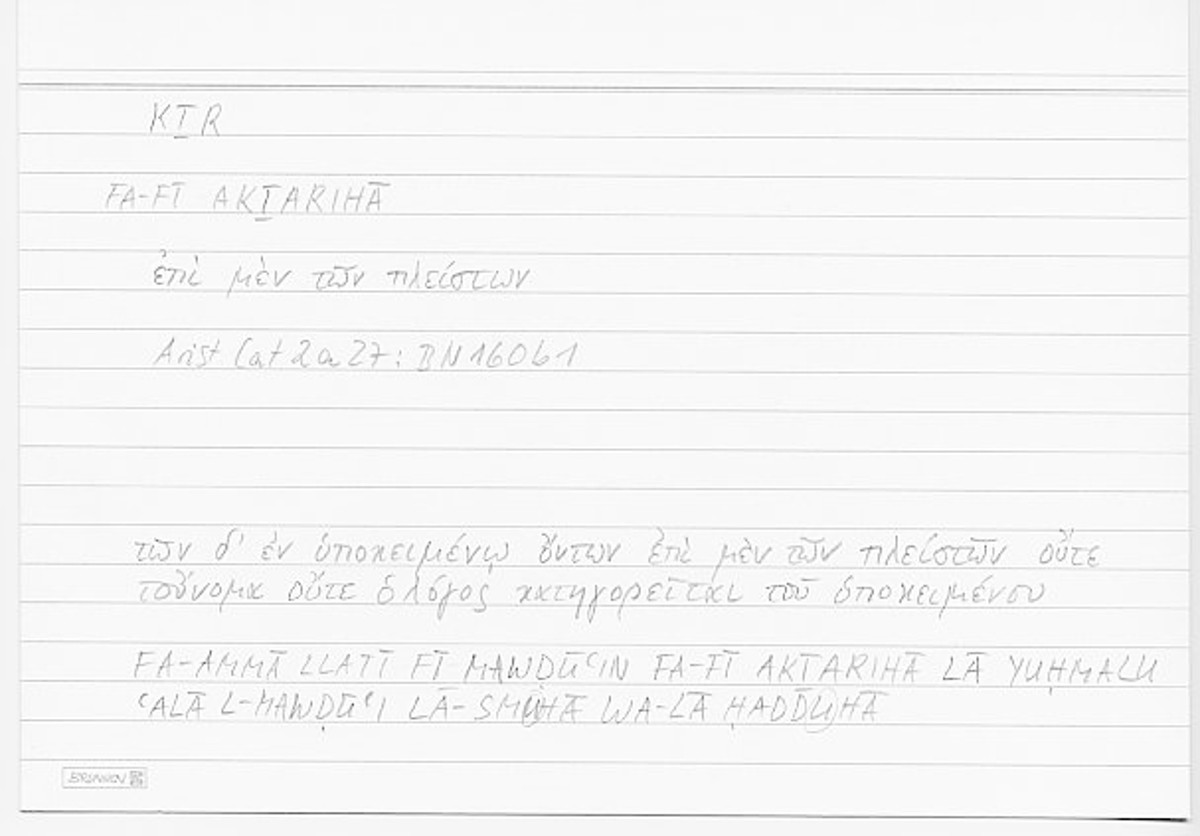 KṮR
FA-FĪ AKṮARIHĀ
ἐπὶ μὲν τῶν πλείστων
Arist Cat 2a27: BN16061
τῶν δ' ἐν ὑποκειμένῳ ὄντων ἐπὶ μὲν τῶν πλείστων οὔτε
τοὔνομα οὔτε ὁ λόγος κατηγορεῖται τοῦ ὑποκειμένου
FA-AMMĀ LLATĪ FĪ MAWḌŪʿIN FA-FĪ AKṮARIHĀ LĀ YUḤMALU
ʿALĀ L-MAWḌŪʿI LĀ-SMUHĀ WA-LĀ ḤADDUHĀ
BRUNNEN